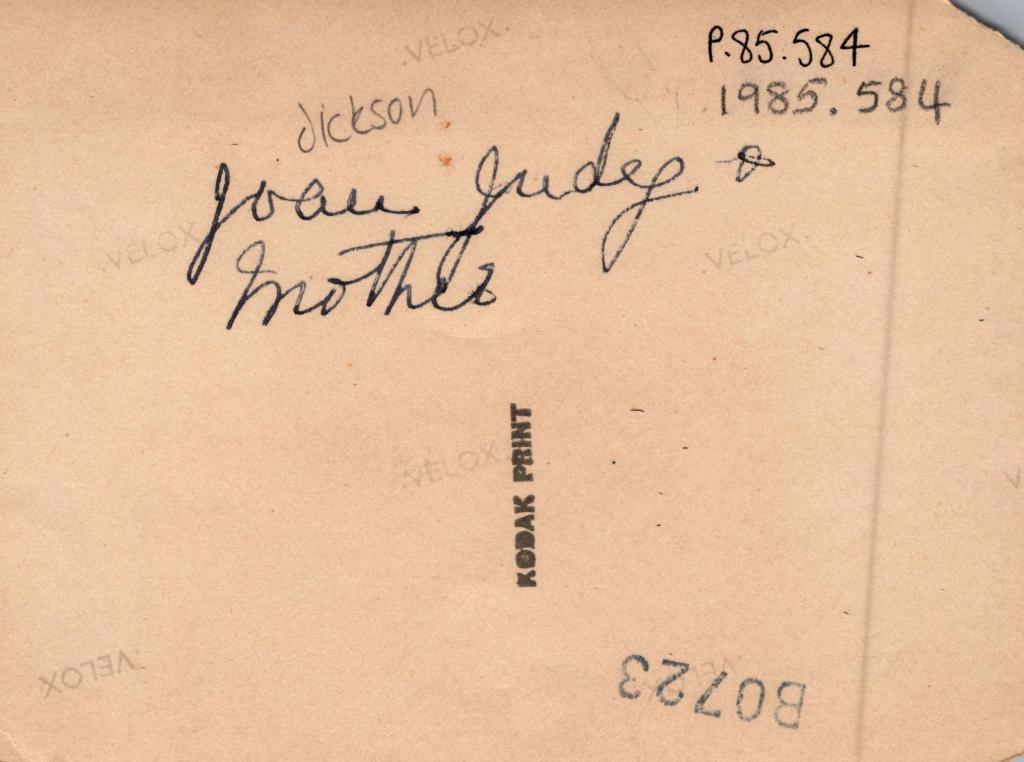 VELOX.
P.85.584
1985.584
dickson
Joan Judy &
Mother
VELOX
VELOX.
VELOX
KODAK PRINT
VELOX
B0723